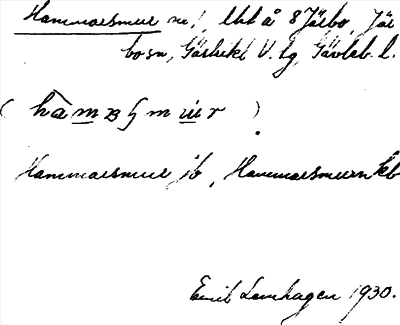 Hammarsmur nr 1, lht å 8 Järbo, Jär
bo sn, Gästrikl V. tg, Gävleb. l.
Hammarsmur jb, Hammarsmurn kb
Emil Lamhagen 1930.